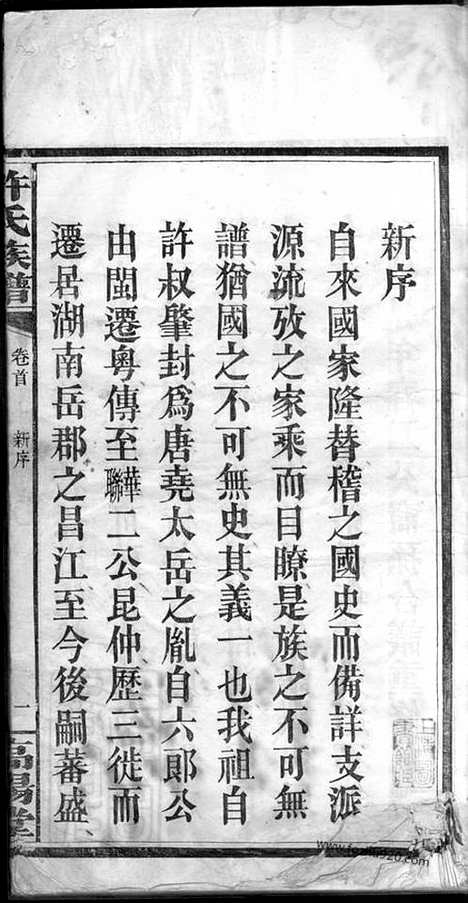 新序
自來國家隆替稽之國史而備詳支派
源流攷之家乘而目瞭是族之不可無
譜猶國之不可無史其義一也我祖自
許叔肇封爲唐堯太岳之胤自六郎公
由閩遷粤傳至華聯二公昆仲歷三徙而
遷居湖南岳郡之昌江至今後嗣蕃盛、
許氏族譜
卷首 新序
一
高陽堂